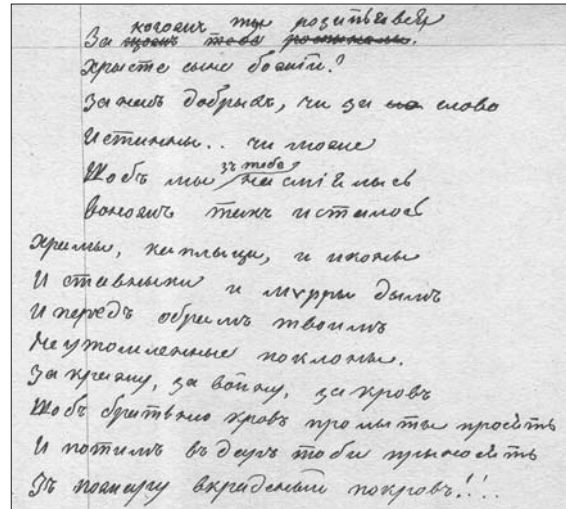 когожъ ты розипъявся
За щожъ тебе роспыналы.
Хрысте сыне божій?
За насъ добрыхъ, чи за слово
Истыны.. чи може
Щобъ мы зъ тебе насміялысь
Воножъ такъ и сталось
Храмы, каплыци, и иконы
И ставныкы и мѵрры дымъ
И передъ образомъ твоимъ
Неутомленные поклоны.
За кражу, за войну, за кровъ
Щобъ братьню кровъ пролыты просять
И потимъ въ даръ тоби прыносять
Зъ пожару вкраденый покровъ!!.